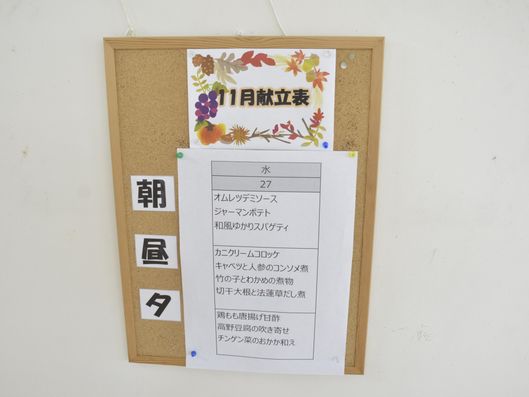 11月献立表
水
27
朝
オムレツデミソース
ジャーマンポテト
和風ゆかりスパゲティ
昼
カニクリームコロッケ
キャベツと人参のコンソメ煮
竹の子とわかめの煮物
切干大根と法蓮草だし煮
夕
鶏もも唐揚げ甘酢
高野豆腐の吹き寄せ
チンゲン菜のおかか和え